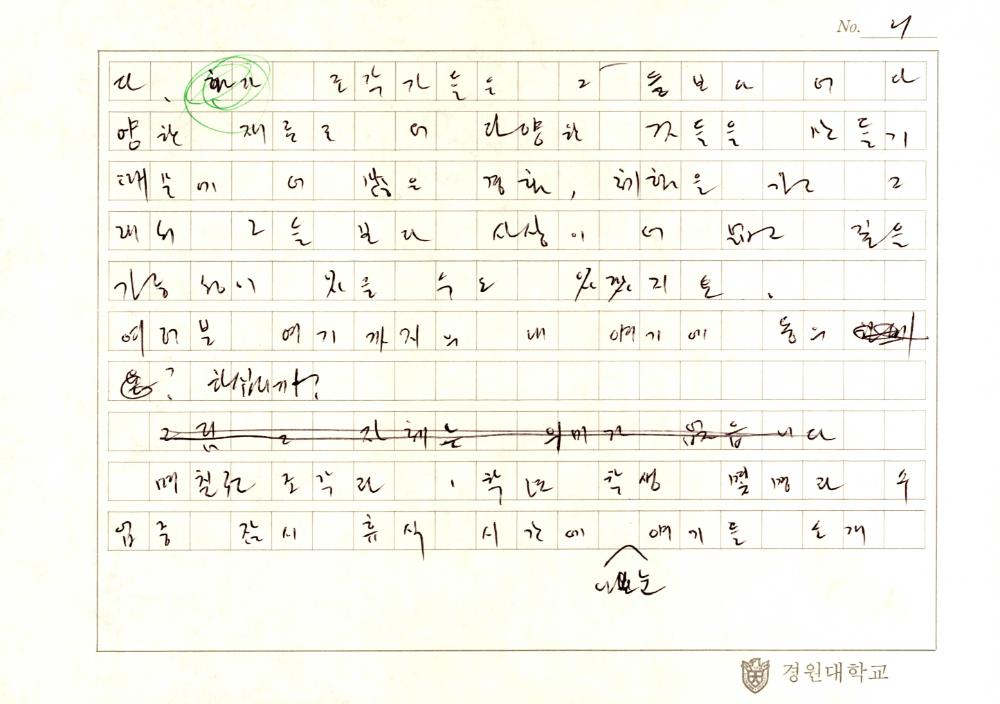 No. 4
다. 화가 조각가들은 그들보다 더 다
양한 재료로 더 다양한 것들을 만들기
때문에 더 많은 경험, 체험을 가지고 그
래서 그들보다 사상이 더 넓고 깊을
가능성이 있을 수도 있겠지요.
여러분 여기까지의 내 얘기에 동의
? 하십니까?
그림 그 자체는 의미가 없읍니다
며칠전 조각과 1학년 학생 몇명과 수
업중 잠시 휴식 시간에 얘기를 소개
나눈
경원대학교